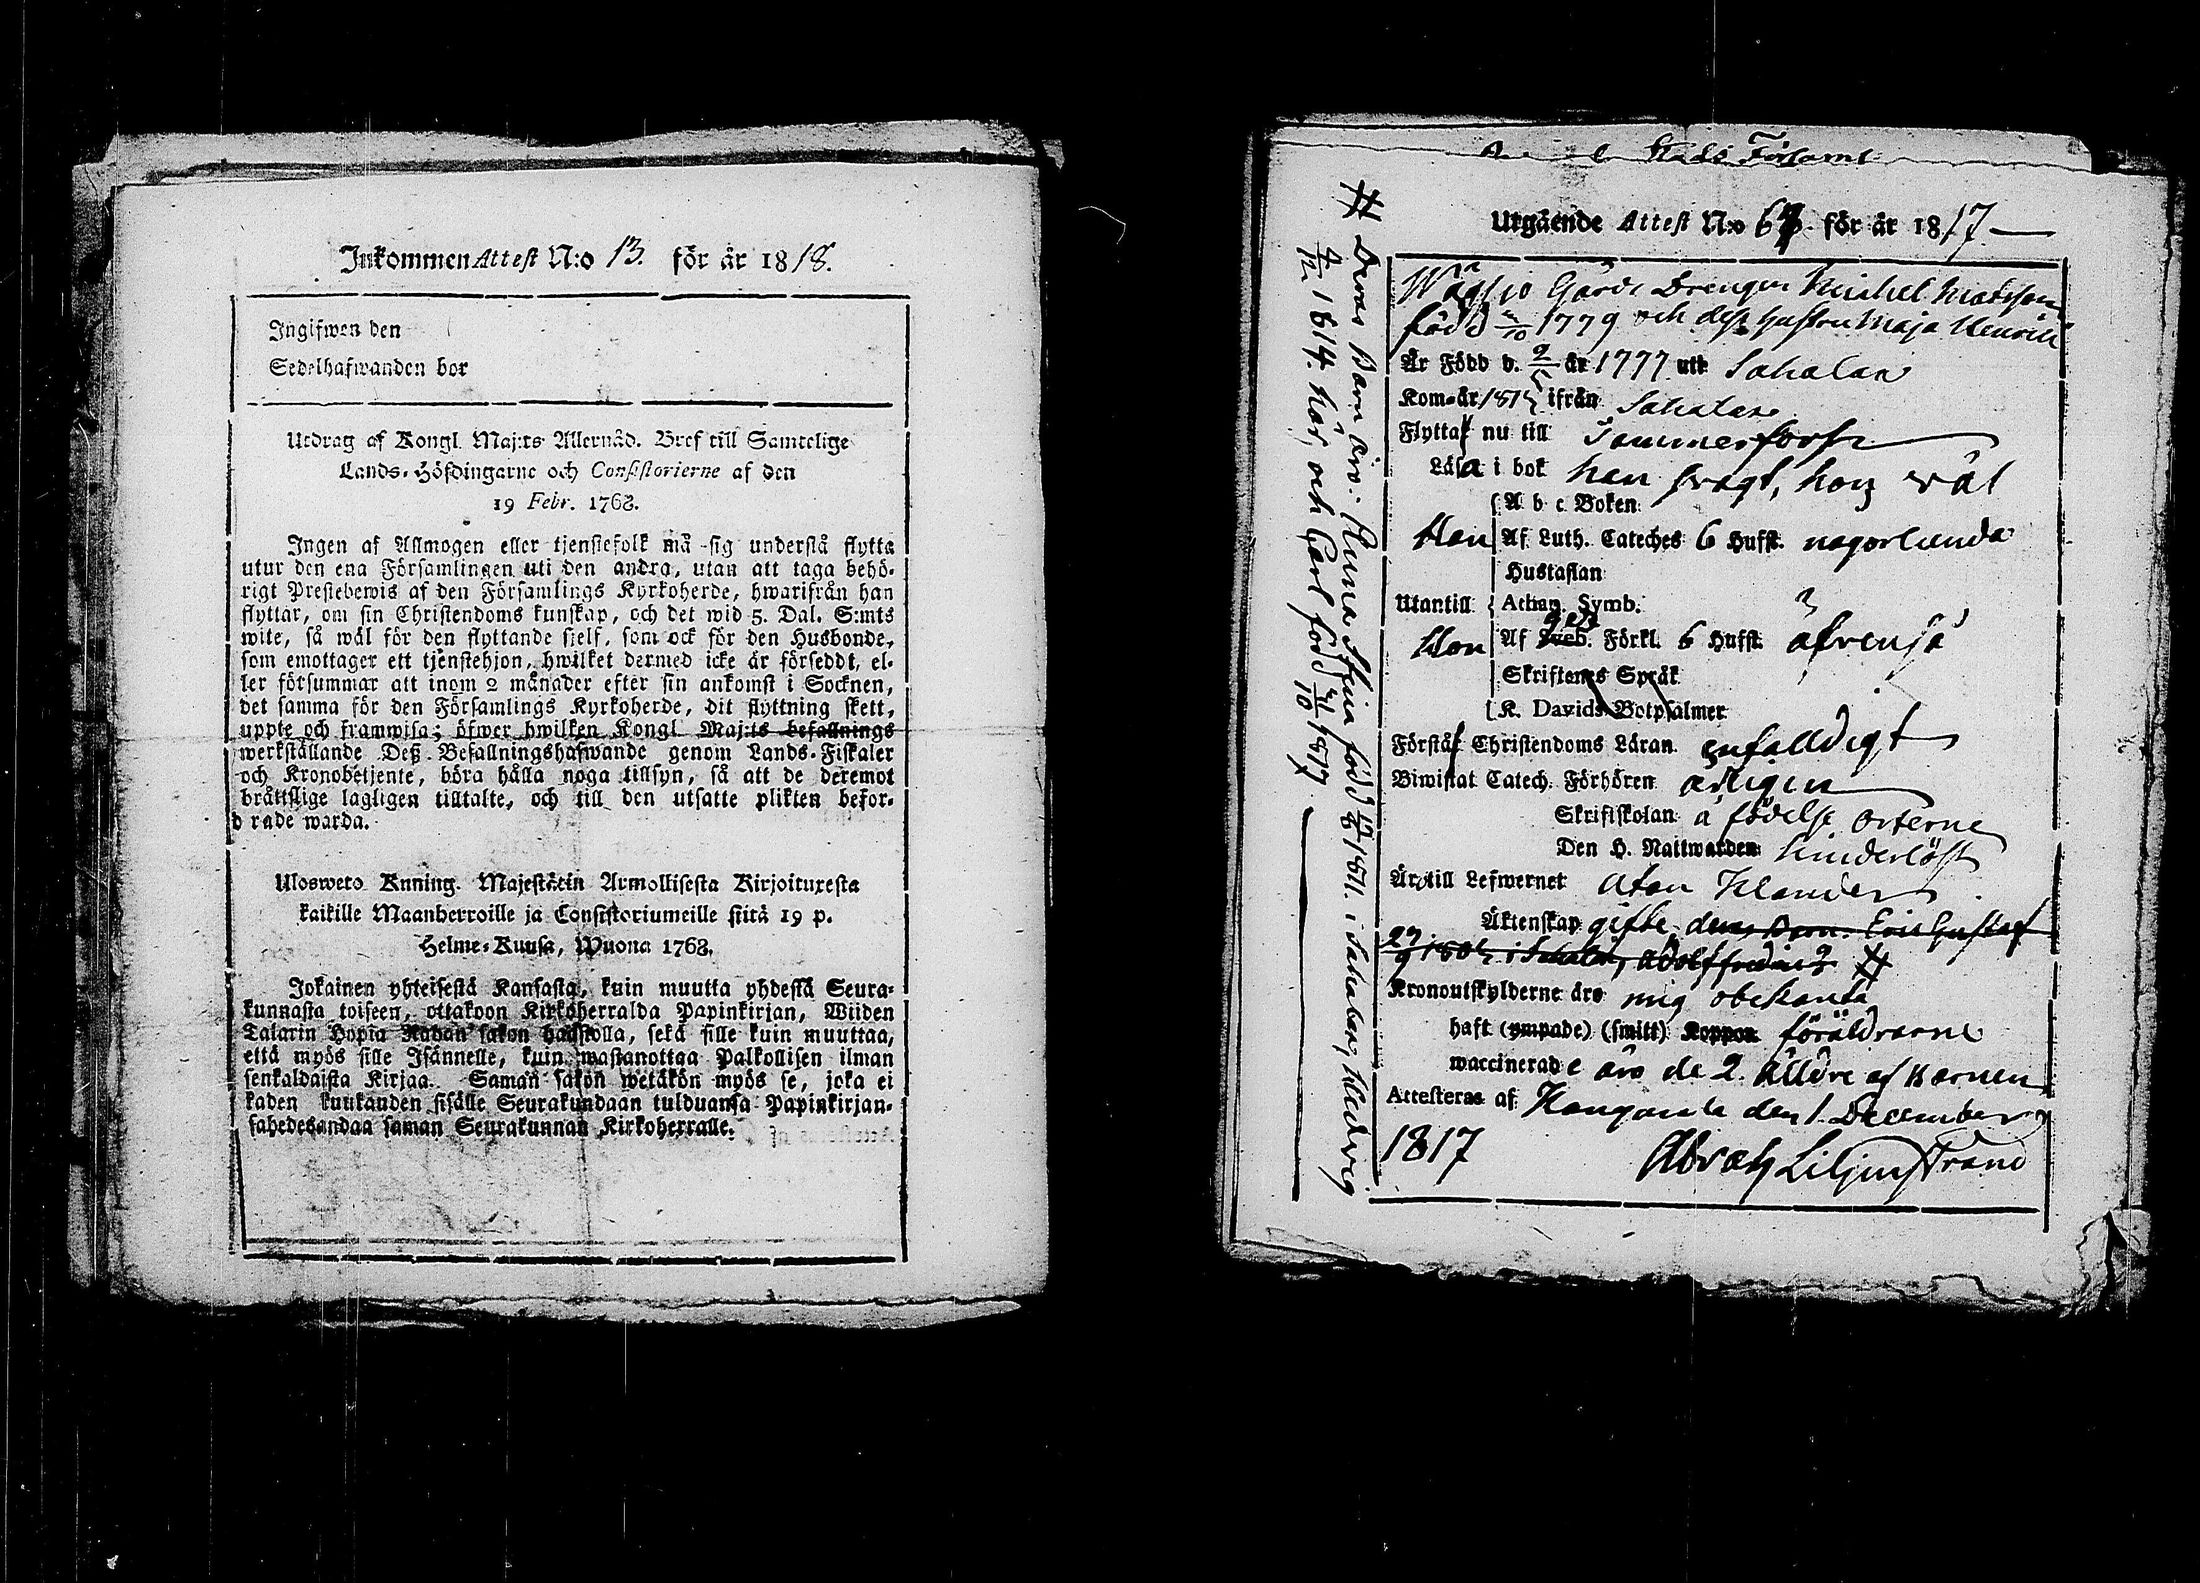 Inkommen Attest N:o 13. för år 1818.
Ingifwen den
Sedelhafwanden bor
Utdrag af Kongl. Maj:ts Allernåd. Bref till Samtelige
Lands-Höfdingarne och Consistorierne af den
19 Febr. 1768.
Ingen af Allmogen eller tjenstefolk må sig understå flytta
utur den ena Församlingen uti den andra, utan att taga behö-
rigt Prestebewis af den Församlings Kyrkoherde, hwarifrån han
flyttar, om sin Christendoms kunskap, och det wid 5. Dal. S:mts
wite, så wäl för den flyttande sjelf, som ock för den Husbonde,
som emottager ett tjenstehjon, hwilket dermed icke är försedt, el-
ler försummar att inom 2 månader efter sin ankomst i Socknen,
det samma för den Församlings Kyrkoherde, dit flyttning skett,
uppte och framwisa; öfwer hwilken Kongl. Maj:ts befallnings
werkställande Deß Befallningshafwande genom Lands-Fiskaler
och Kronobetjente, böra hålla noga tillsyn, så att de deremot
bråttslige lagligen tilltalte, och till den utsatte plikten befor-
drade warda.
Ulosweto Knning. Majestätin Armollisesta Kirjoituxesta
kaikille Maanherroille ja Consistoriumeille siitä 19 p.
Helme-Kuusa, Wuona 1768.
Jokainen yhteisestä Kansasta, kuin muutta yhdestä Seura-
kunnasta toiseen, ottakoon Kirkoherralda Papinkirjan, Wiiden
Talarin Hopia Rahan sakon haastolla, sekä sille kuin muuttaa,
että myös sille Isännelle, kuin wastanottaa Palkollisen ilman
senkaldaista Kirjaa. Saman sakon wetäkön myös se, joka ei
kaden kuukauden sisälle Seurakundaan tulduansa Papinkirjan-
sahedesandaa saman Seurakunnan Kirkoherralle.
Stads Församl
Utgående Attest N:o 63. för år 1817
Gårds Drengen Michel Matsson
född 1779 och dess hustru Maja Henrici
Är Född d. 9/5 år 1777 utt Sahalax
Kom-år 1815 ifrån Sahalax
Flytta nu till Tammerfors
Läsa i bok han svagt, hon väl
A b c Boken
Hon Af Luth. Cateches 6 Hufst. någorlunda
Hustaflan
Utantill Athan. Symb.
Hon Af Sveb. Förkl. 6 Hufst. äfvenså
Skriftenes Språk
K. Davids Botpsalmer
Förstå Christendoms Läran enfalldigt
Biwistat Catech. Förhören årligen
Skriftskolan å födelse orterne
Den H. Nattwarden hinderlöst
Äro till Lefwernet utan klander
Äktenskap gifte, deras Barn: Eric Gustaf
i Sahalax, Adolf Fredric #
Kronoutskylderne äro mig obekanta
haft (ympade) (smitt) Koppor föräldrarne
waccinerade äro de 2 äldre af Barnen
Attesteras af Kangasala den 1. December
1817 Abrah Liljenstrand
# Deras Barn äro: Anna Stina född 17/8 1811. i Sahalax, Hedvig
4/12 1814. här, och Carl född 21/10 1817